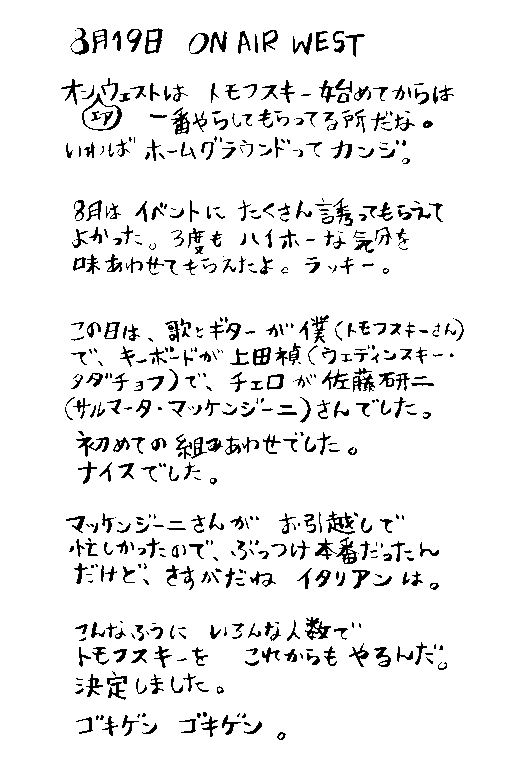 8月19日 ON AIR WEST
オンエアウェストは トモフスキー始めてからは
一番やらしてもらってる所だな。
いわば ホームグラウンドって カンジ。
8月は イベントに たくさん誘ってもらえて
よかった。3度も ハイホーな気分を
味あわせてもらえたよ。ラッキー。
この日は、歌とギターが僕(トモフスキーさん)
で、キーボードが上田禎(ウェディンスキー・
タダチョフ)で、チェロが佐藤研二
(サルマータ・マッケンジーニ)さんでした。
初めての組みあわせでした。
ナイスでした。
マッケンジーニさんが お引越しで
忙しかったので、ぶっつけ本番だったん
だけど、さすがだね イタリアンは。
こんなふうに いろんな人数で
トモフスキーを これからも やるんだ。
決定しました。
ゴキゲン ゴキゲン 。